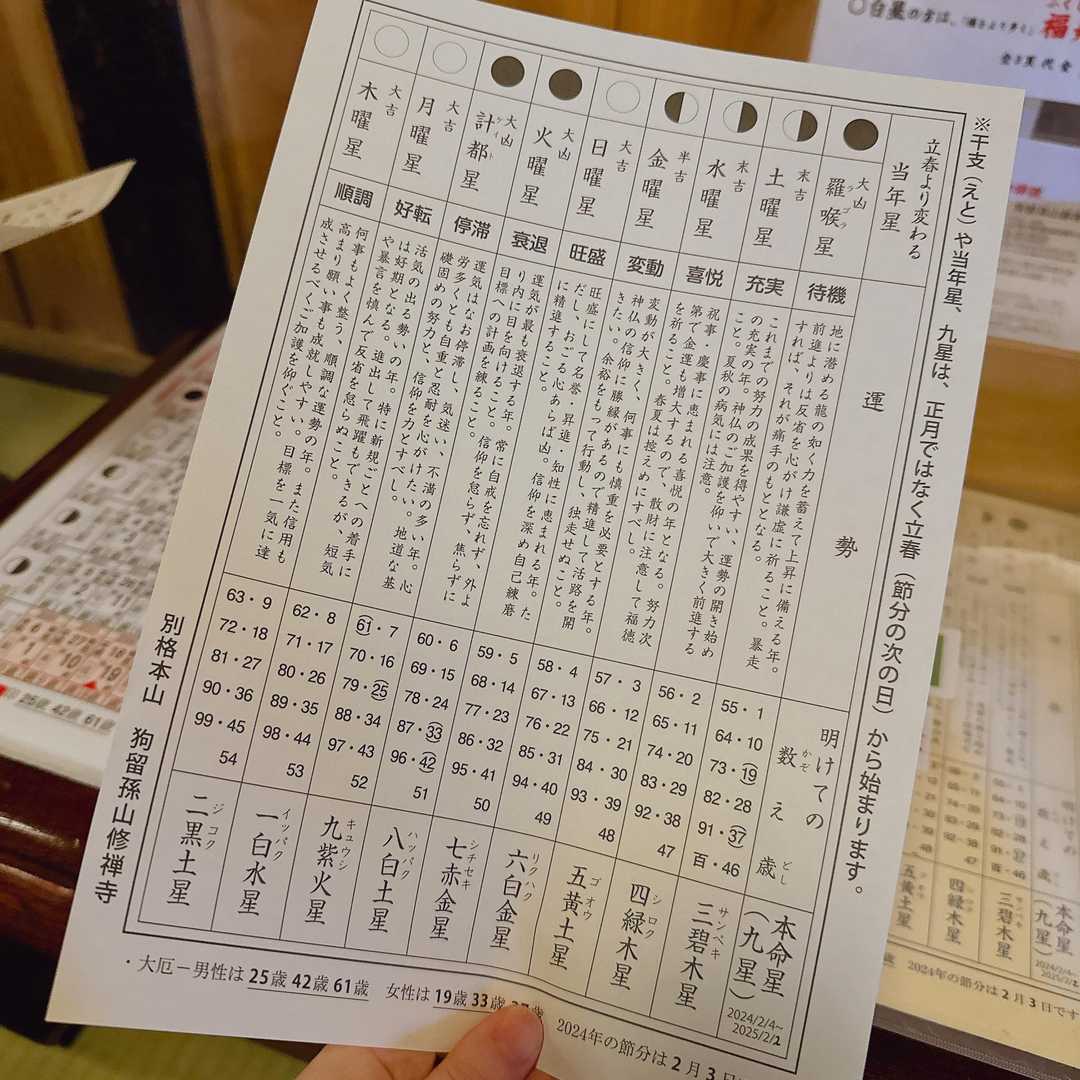 ※干支(えと)や当年星、九星は、正月ではなく立春(節分の次の日)から始まります。
立春より変わる
当年星
運勢
明けての
数え歳
かぞ どし
本命星
(九星)
2024/2/4~
2025/2/2
大凶
羅喉星
ラゴラ
待機
地に潜める龍の如く力を蓄えて上昇に備える年。
前進よりは反省を心がけ謙虚に祈ること。暴走
すれば、それが痛手のもととなる。
55・1
64・10
73・19
82・28
91・37
百・46
三碧木星
サンペキ
末吉
土曜星
充実
これまでの努力の成果を得やすい、運勢の開き始め
の充実の年。神仏のご加護を仰いで大きく前進する
こと。夏秋の病気には注意。
56・2
65・11
74・20
83・29
92・38
47
四緑木星
シロク
末吉
水曜星
喜悦
祝事・慶事に恵まれる喜悦の年となる。努力次
第で金運も増大するので、散財に注意して福徳
を祈ること。春夏は控えめにすべし。
57・3
66・12
75・21
84・30
93・39
48
五黄土星
ゴオウ
半吉
金曜星
変動
変動が大きく、何事にも慎重を必要とする年。
神仏の信仰に勝縁があるので精進して活路を開
きたい。余裕をもって行動し、独走せぬこと。
58・4
67・13
76・22
85・31
94・40
49
六白金星
リクハク
大吉
日曜星
旺盛
旺盛にして名誉・昇進・知性に恵まれる年。た
だし、おごる心あらば凶。信仰を深め自己練磨
に精進すること。
59・5
68・14
77・23
86・32
95・41
50
七赤金星
シチセキ
大凶
火曜星
衰退
運気が最も衰退する年。常に自戒を忘れず、外よ
り内に目を向けること。信仰を怠らず、焦らずに
目標への計画を練ること。
60・6
69・15
78・24
87・33
96・42
51
八白土星
ハッパク
大凶
計都星
ケイト
停滞
運気はなお停滞し、気迷い、不満の多い年。心
労多くとも自重と忍耐を心がけたい。地道な基
礎固めの努力と、信仰を力とすべし。
61・7
70・16
79・25
88・34
97・43
52
九紫火星
キュウシ
大吉
月曜星
好転
活気の出る勢いの年。特に新規ごとへの着手に
は好期となる。進出して飛躍もできるが、短気
や暴言を慎んで反省を怠らぬこと。
62・8
71・17
80・26
89・35
98・44
53
一白水星
イッパク
大吉
木曜星
順調
何事もよく整う、順調な運勢の年。また信用も
高まり願い事も成就しやすい。目標を一気に達
成させるべくご加護を仰ぐこと。
63・9
72・18
81・27
90・36
99・45
54
二黒土星
ジコク
別格本山 狗留孫山修禅寺
・大厄−男性は25歳 42歳 61歳 女性は19歳 33歳 37歳
2024年の節分は2月3日
本命星
(九星)
2024/2/4~
三碧木星
四緑木星
五黄土星
2024年の節分は2月3日です
25歳 42歳 61歳